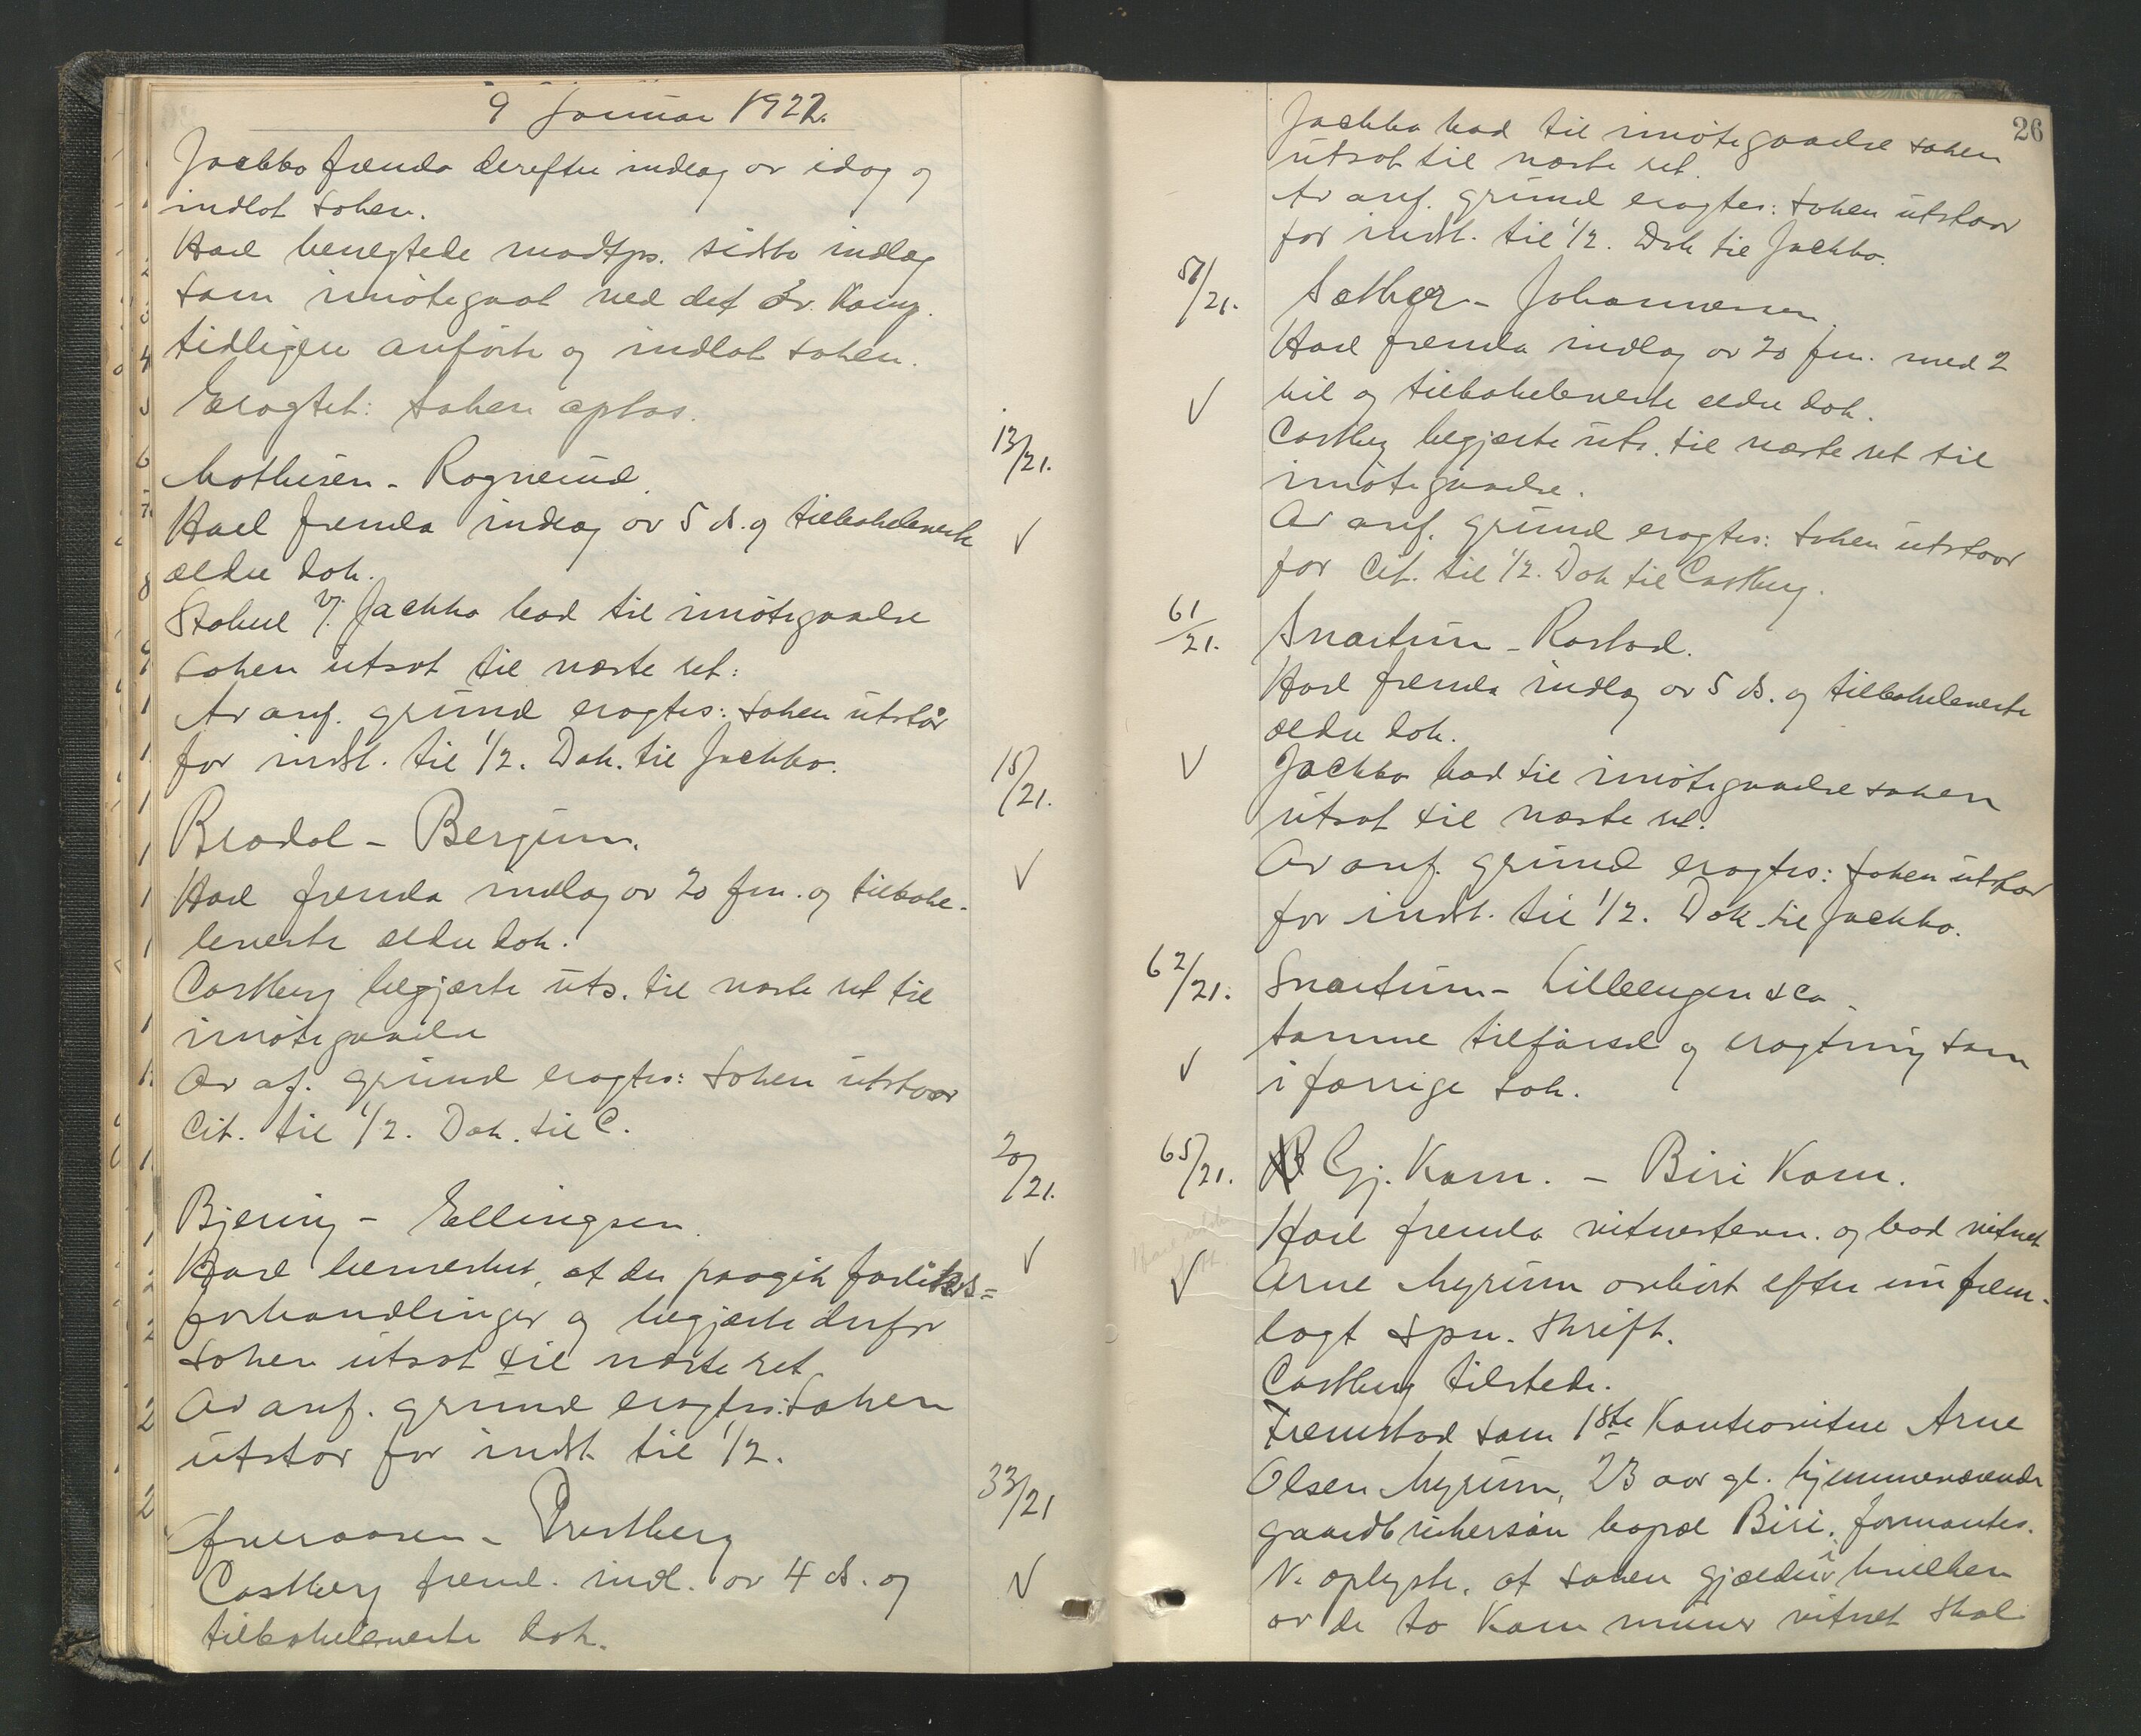 9 Januar 1922.
Jackbo fremla derefter indlæg av idag og
indlot saken.
Hoel benegtede modtps. sidste indlæg
som imøtegaat ved det av Komp.
tidligere anførte og indlot saken.
Eragtet: saken optas.
13/21.
Mathisen - Rognerud.
Hoel fremla indlæg av 5 ds. og tilbakeleverte
ældre dok.
Stabul v/ Jackbo bad til imøtegaaelse
saken utsat til næste ret:
Av anf. grund eragtes: Saken utstår
for indst. til 1/2. Dok. til Jackbo.
15/21.
Bradal - Bergum.
Hoel fremla indlæg av 20 fm. og tilbake-
leverte ældre dok.
Castberg begjærte uts. til næste ret til
imøtegaaelse
Av af. grund eragtes: Saken utstaar
Cit. til 1/2. Dok. til C.
20/21.
Bjering - Ellingsen.
Hoel bemerket, at der paagik forliks=
forhandlinger og begjærte derfor
saken utsat til næste ret
Av anf. grund eragtes: Saken
utstar for indst. til 1/2.
33/21
- Prestberg
Castberg freml. indl. av 4 ds. og
tilbakeleverte dok.
26
Jackbo bad til imøtegaaelse saken
utsat til næste ret.
Av anf. grund eragtes: Saken utstaar
for indst. til 1/2. Dok til Jackbo.
57/21.
Sæther - Johannesen.
Hoel fremla indlæg av 20 fm. med 2
bil og tilbakeleverte ældre dok.
Castberg begjærte uts. til næste ret til
imøtegaaelse.
Av anf. grund eragtes: Saken utstaar
for Cit. til 1/2. Dok til Castberg.
61/21.
Snartum - Rostad.
Hoel fremla indlæg av 5 ds. og tilbakeleverte
ældre dok.
Jackbo bad til imøtegaaelse saken
utsat til næste ret.
Av anf. grund eragtes: Saken utstar
for indst. til 1/2. Dok til Jackbo.
62/21.
Snartum - Lilleengen & Co.
Samme tilførsel og eragtning som
i forrige sak.
65/21.
Gj. Kom. - Biri Kom.
Hoel fremla vitnestevn. og bad vitnet
Arne Myrum avhørt efter nu frem-
lagt spm. skrift.
Castberg tilstede.
Fremstod som 1ste Kontravitne Arne
Olsen Myrum, 23 aar gl. hjemmeværende
gaardbrukersøn bopæl Biri, formantes.
V. oplyste, at saken gjælder i hvilken
av de to Kommuner vitnet skal